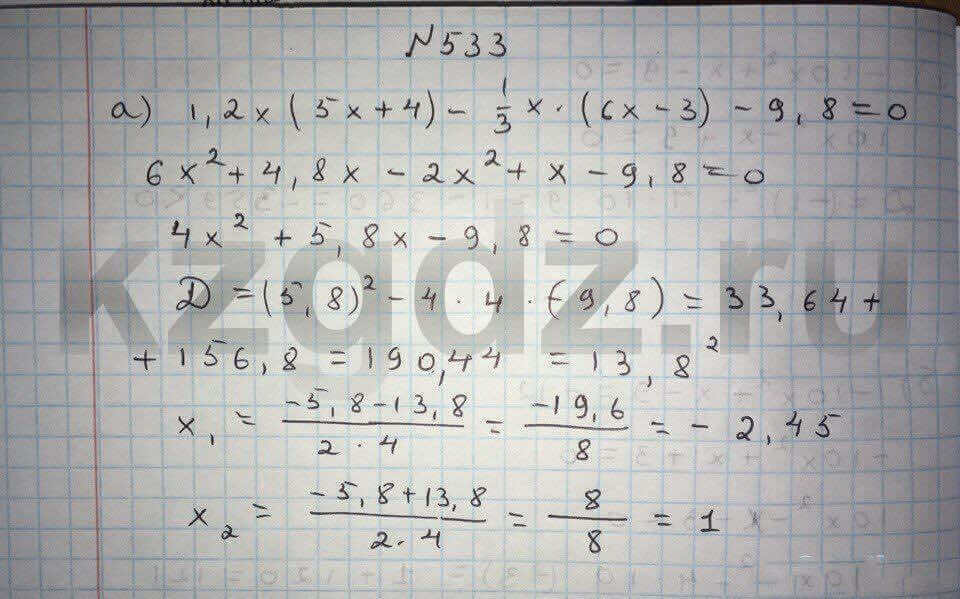 N533
а) 1,2x(5x+4) - 1/3 x·(6x-3) - 9,8=0
6x²+4,8x - 2x²+x - 9,8=0
4x² + 5,8x - 9,8=0
D = (5,8)² - 4·4·(-9,8) = 33,64+
+156,8 = 190,44 = 13,8²
x₁ = (-5,8-13,8)/(2·4) = (-19,6)/8 = -2,45
x₂ = (-5,8+13,8)/(2·4) = 8/8 = 1
kzgdz.ru